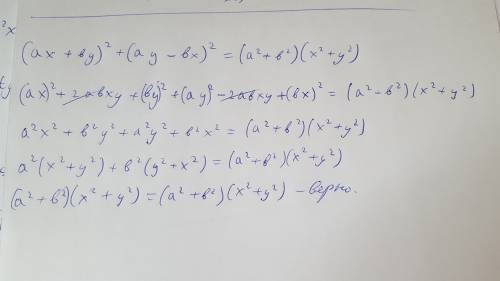 ²x
(ax + by)² + (ay − bx)² = (a² + b²)(x² + y²)
ty (ax)² + 2abxy + (by)² + (ay)² − 2abxy + (bx)² = (a² − b²)(x² + y²)
a²x² + b²y² + a²y² + b²x² = (a² + b²)(x² + y²)
a²(x² + y²) + b²(y² + x²) = (a² + b²)(x² + y²)
(a² + b²)(x² + y²) = (a² + b²)(x² + y²) – верно.